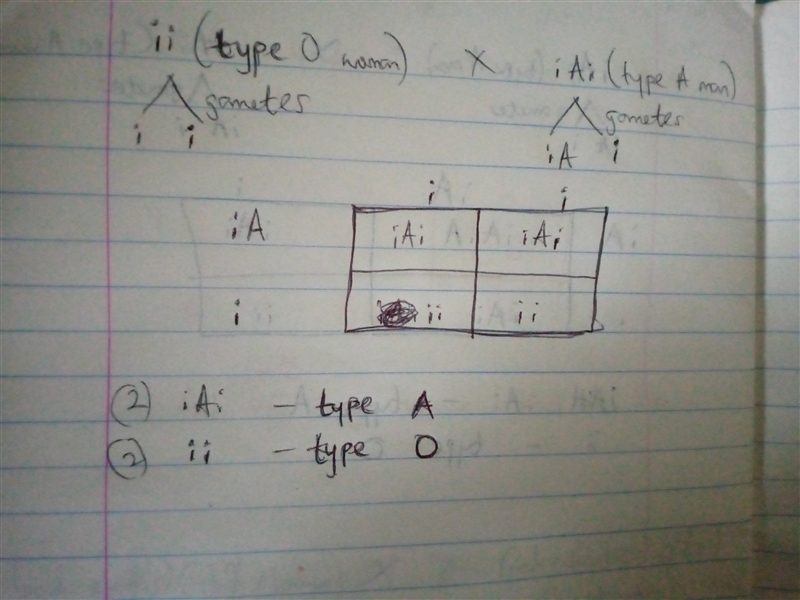 ii (type O woman) X iAi (type A man)
gametes gametes
i i iA i
i i
iA iAi iAi
i ii ii
(2) iAi - type A
(2) ii - type O